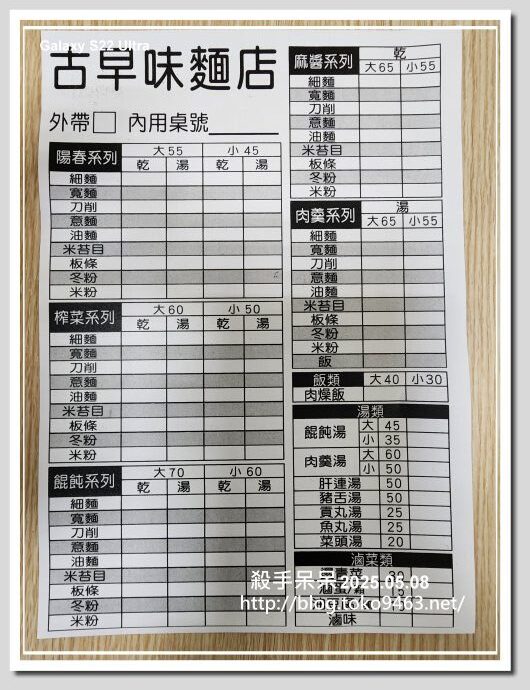 Galaxy S22 Ultra
古早味麵店
外帶□ 內用桌號
陽春系列 大55 小45
乾 湯 乾 湯
細麵
寬麵
刀削
意麵
油麵
米苔目
板條
冬粉
米粉
榨菜系列 大60 小50
乾 湯 乾 湯
細麵
寬麵
刀削
意麵
油麵
米苔目
板條
冬粉
米粉
餛飩系列 大70 小60
乾 湯 乾 湯
細麵
寬麵
刀削
意麵
油麵
米苔目
板條
冬粉
米粉
麻醬系列 乾
大65 小55
細麵
寬麵
刀削
意麵
油麵
米苔目
板條
冬粉
米粉
肉羹系列 湯
大65 小55
細麵
寬麵
刀削
意麵
油麵
米苔目
板條
冬粉
米粉
飯
飯類 大40 小30
肉燥飯
湯類
餛飩湯 大 45
小 35
肉羹湯 大 60
小 50
肝連湯 50
豬舌湯 50
貢丸湯 25
魚丸湯 25
菜頭湯 20
滷菜類
滷味
殺手呆呆 2025.05.08
http://blog.toko9463.net/